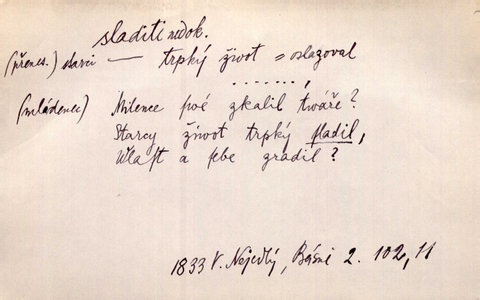 sladiti nedok.
(přenes.) starci — trpký život = oslazoval
.......,
(mládenec) Milence své zkalil twáře?
Starcy žiwot trpký sladil,
Wlast a sebe zradil?
1833 V. Nejedlý, Básně 2. 102, 11